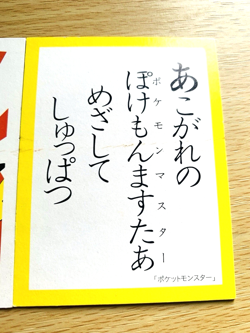 あこがれの
ぽけもんますたあ
ポケモンマスター
めざして
しゅっぱつ
「ポケットモンスター」